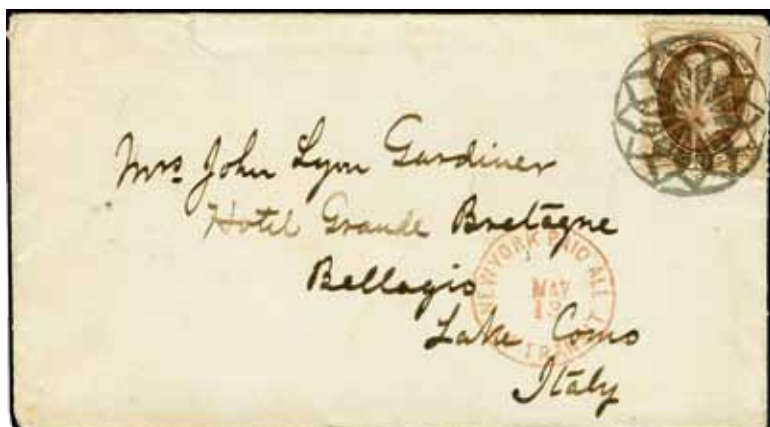 Mrs. John Lyon Gardiner
Hotel Grande Bretagne
Bellagio
Lake Como
Italy
NEW YORK PAID ALL
MAY
13
TRANSIT